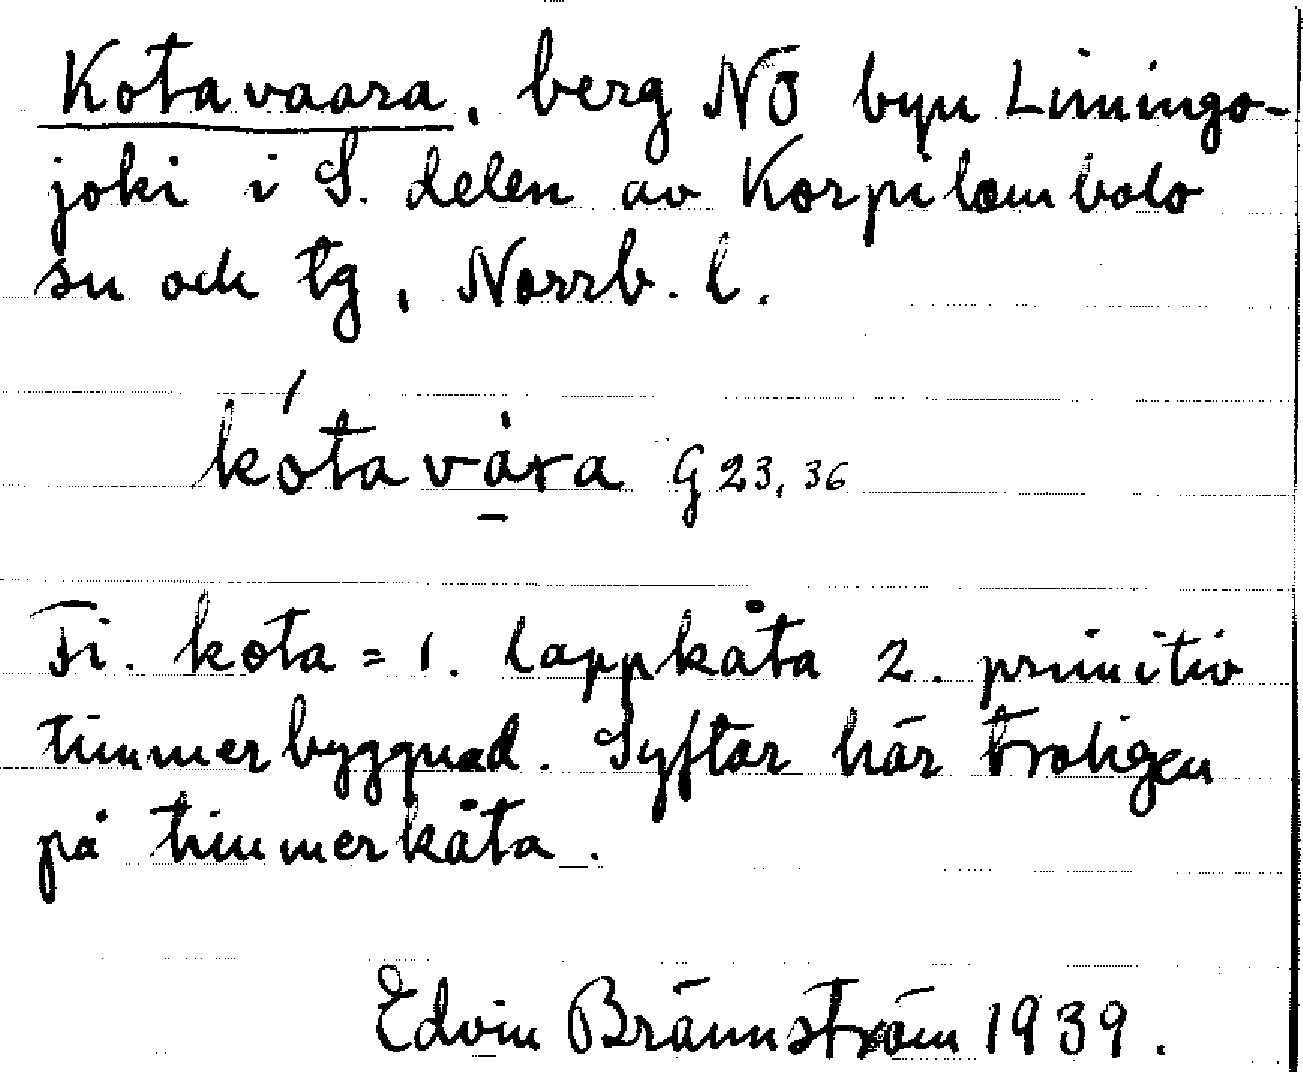 Kotavaara, berg NÖ byn Limingo-
joki i S. delen av Korpilombolo
sn och tg, Norrb. l.
kótavȧra G 23, 36
Fi. kota = 1. lappkåta 2. primitiv
timmerbyggnad. Syftar här troligen
på timmerkåta.
Edvin Brännström 1939.